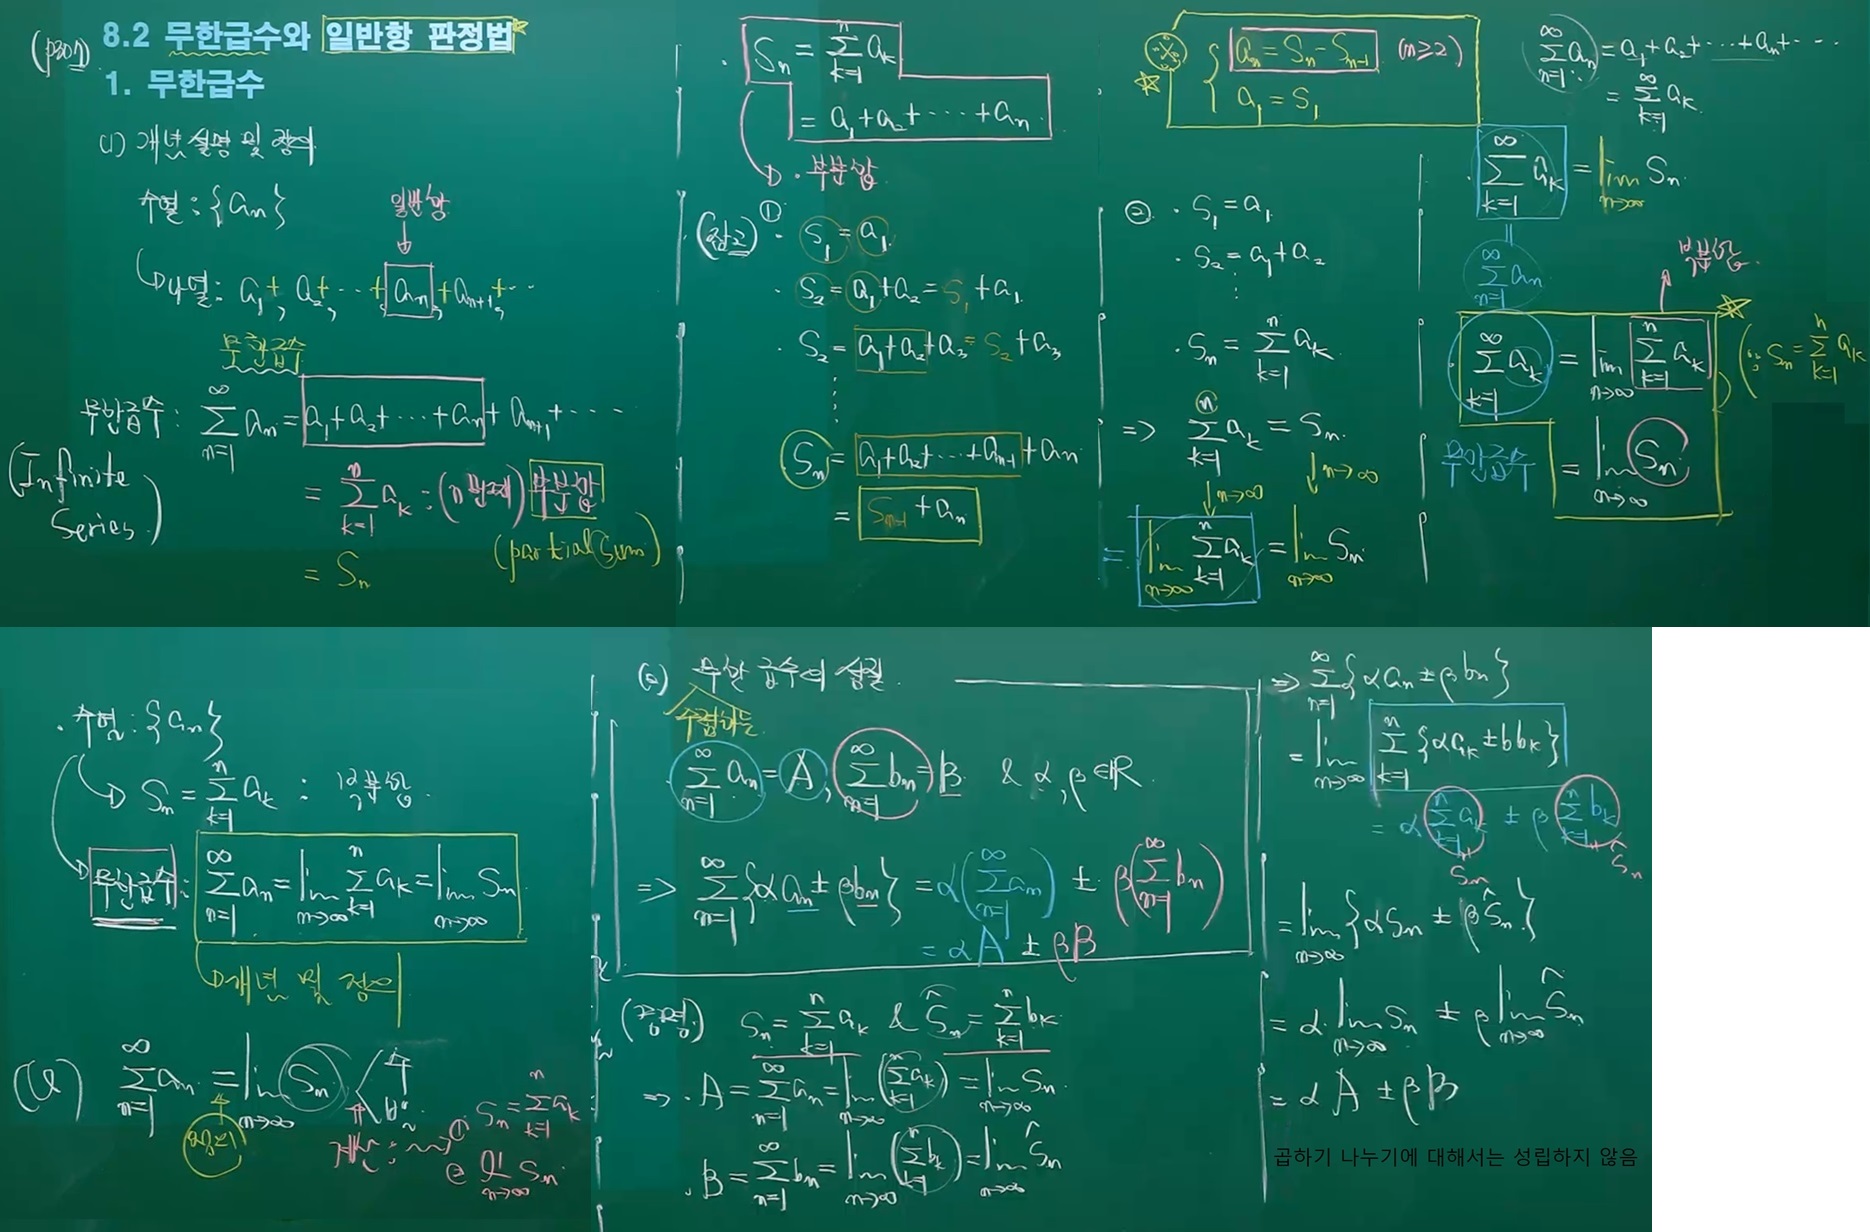 (p301)
8.2 무한급수와 일반항 판정법
1. 무한급수
(1) 개념 설명 및 정의
수열 : {aₙ}
일반항
나열 : a₁ + , a₂ + , ⋯ + , aₙ + , aₙ₊₁ + , ⋯
무한급수
무한급수 : ∑_{n=1}^{∞} aₙ = a₁+a₂+⋯+aₙ + aₙ₊₁ + ⋯
(Infinite Series)
= ∑_{k=1}^{n} aₖ : (n번째) 부분합
= Sₙ (partial Sum)
· Sₙ = ∑_{k=1}^{n} aₖ
= a₁+a₂+⋯+aₙ
· 부분합
(참고) ① · S₁ = a₁
· S₂ = a₁+a₂ = S₁+a₁
· S₂ = a₁+a₂+a₃ = S₂+a₃
⋮
Sₙ = a₁+a₂+⋯+aₙ₋₁+aₙ
= Sₙ₋₁ + aₙ
※ { aₙ = Sₙ − Sₙ₋₁ (n≥2)
a₁ = S₁
② · S₁ = a₁
· S₂ = a₁+a₂
⋮
· Sₙ = ∑_{k=1}^{n} aₖ
=> ∑_{k=1}^{n} aₖ = Sₙ
↓ n→∞ ↓ n→∞
= lim_{n→∞} ∑_{k=1}^{n} aₖ = lim_{n→∞} Sₙ
∑_{n=1}^{∞} aₙ = a₁+a₂+⋯+aₙ+⋯
= ∑_{k=1}^{∞} aₖ
· ∑_{k=1}^{∞} aₖ = lim_{n→∞} Sₙ
||
∑_{n=1}^{∞} aₙ
부분합
∑_{k=1}^{∞} aₖ = lim_{n→∞} ∑_{k=1}^{n} aₖ (∵ Sₙ = ∑_{k=1}^{n} aₖ)
무한급수 = lim_{n→∞} Sₙ
· 수열 : {aₙ}
Sₙ = ∑_{k=1}^{n} aₖ : 부분합
무한급수 : ∑_{n=1}^{∞} aₙ = lim_{n→∞} ∑_{k=1}^{n} aₖ = lim_{n→∞} Sₙ
개념 및 정의
∑_{n=1}^{∞} aₙ = lim_{n→∞} Sₙ < 수
발
정의
계산 : ① Sₙ = ∑_{k=1}^{n} aₖ
② lim_{n→∞} Sₙ
(2) 무한급수의 성질
수렴하는
∑_{n=1}^{∞} aₙ = A, ∑_{n=1}^{∞} bₙ = B & α, β ∈ ℝ
=> ∑_{n=1}^{∞} {αaₙ ± βbₙ} = α(∑_{n=1}^{∞} aₙ) ± β(∑_{n=1}^{∞} bₙ)
= αA ± βB
(증명) Sₙ = ∑_{k=1}^{n} aₖ & Ŝₙ = ∑_{k=1}^{n} bₖ
=> · A = ∑_{n=1}^{∞} aₙ = lim_{n→∞} (∑_{k=1}^{n} aₖ) = lim_{n→∞} Sₙ
· B = ∑_{n=1}^{∞} bₙ = lim_{n→∞} (∑_{k=1}^{n} bₖ) = lim_{n→∞} Ŝₙ
=> ∑_{n=1}^{∞} {αaₙ ± βbₙ}
= lim_{n→∞} ∑_{k=1}^{n} {αaₖ ± bbₖ}
= α ∑_{k=1}^{n} aₖ ± β ∑_{k=1}^{n} bₖ
Sₙ Ŝₙ
= lim_{n→∞} {αSₙ ± βŜₙ}
= α lim_{n→∞} Sₙ ± β lim_{n→∞} Ŝₙ
= αA ± βB
곱하기 나누기에 대해서는 성립하지 않음